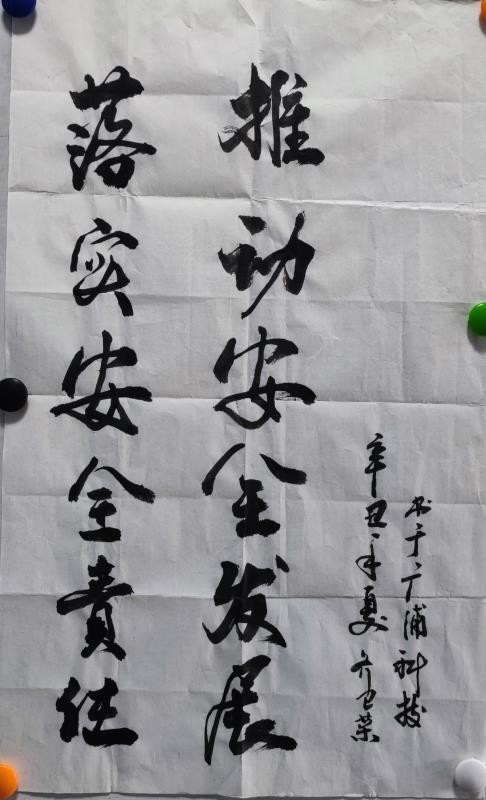 落实安全責任
推动安全发展
辛丑年夏
书于广浦科技